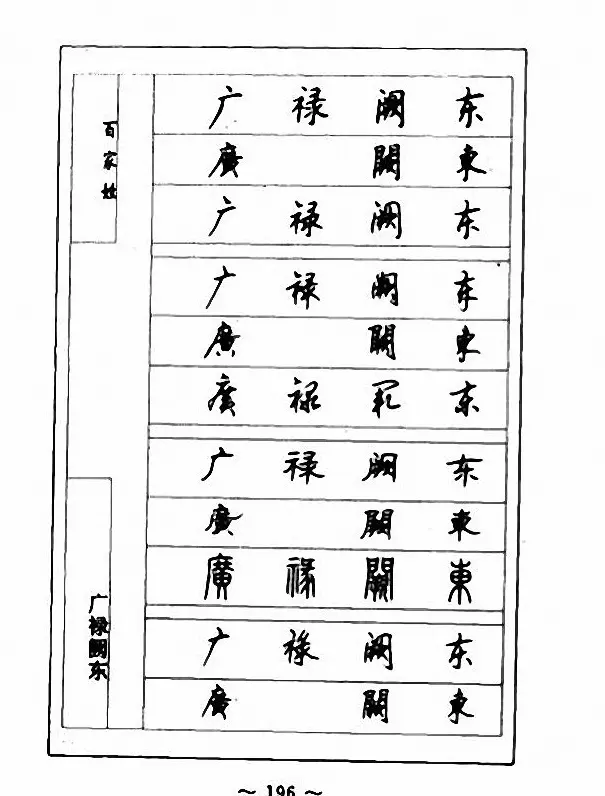 百家姓
广禄阙东
广 禄 阙 东
廣 闕 東
广 禄 阙 东
广 禄 阙 东
廣 闕 東
廣 禄 阙 东
广 禄 阙 东
廣 闕 東
廣 禄 闕 東
广 禄 阙 东
廣 闕 東
~ 196 ~